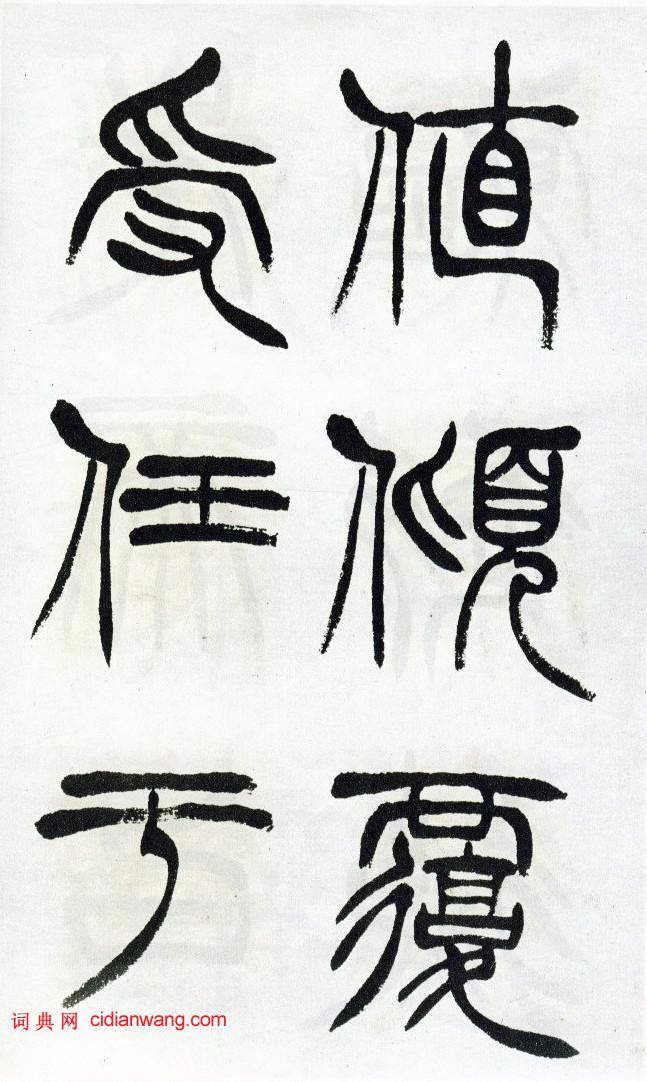 值傾覆
受任于
词典网 cidianwang.com